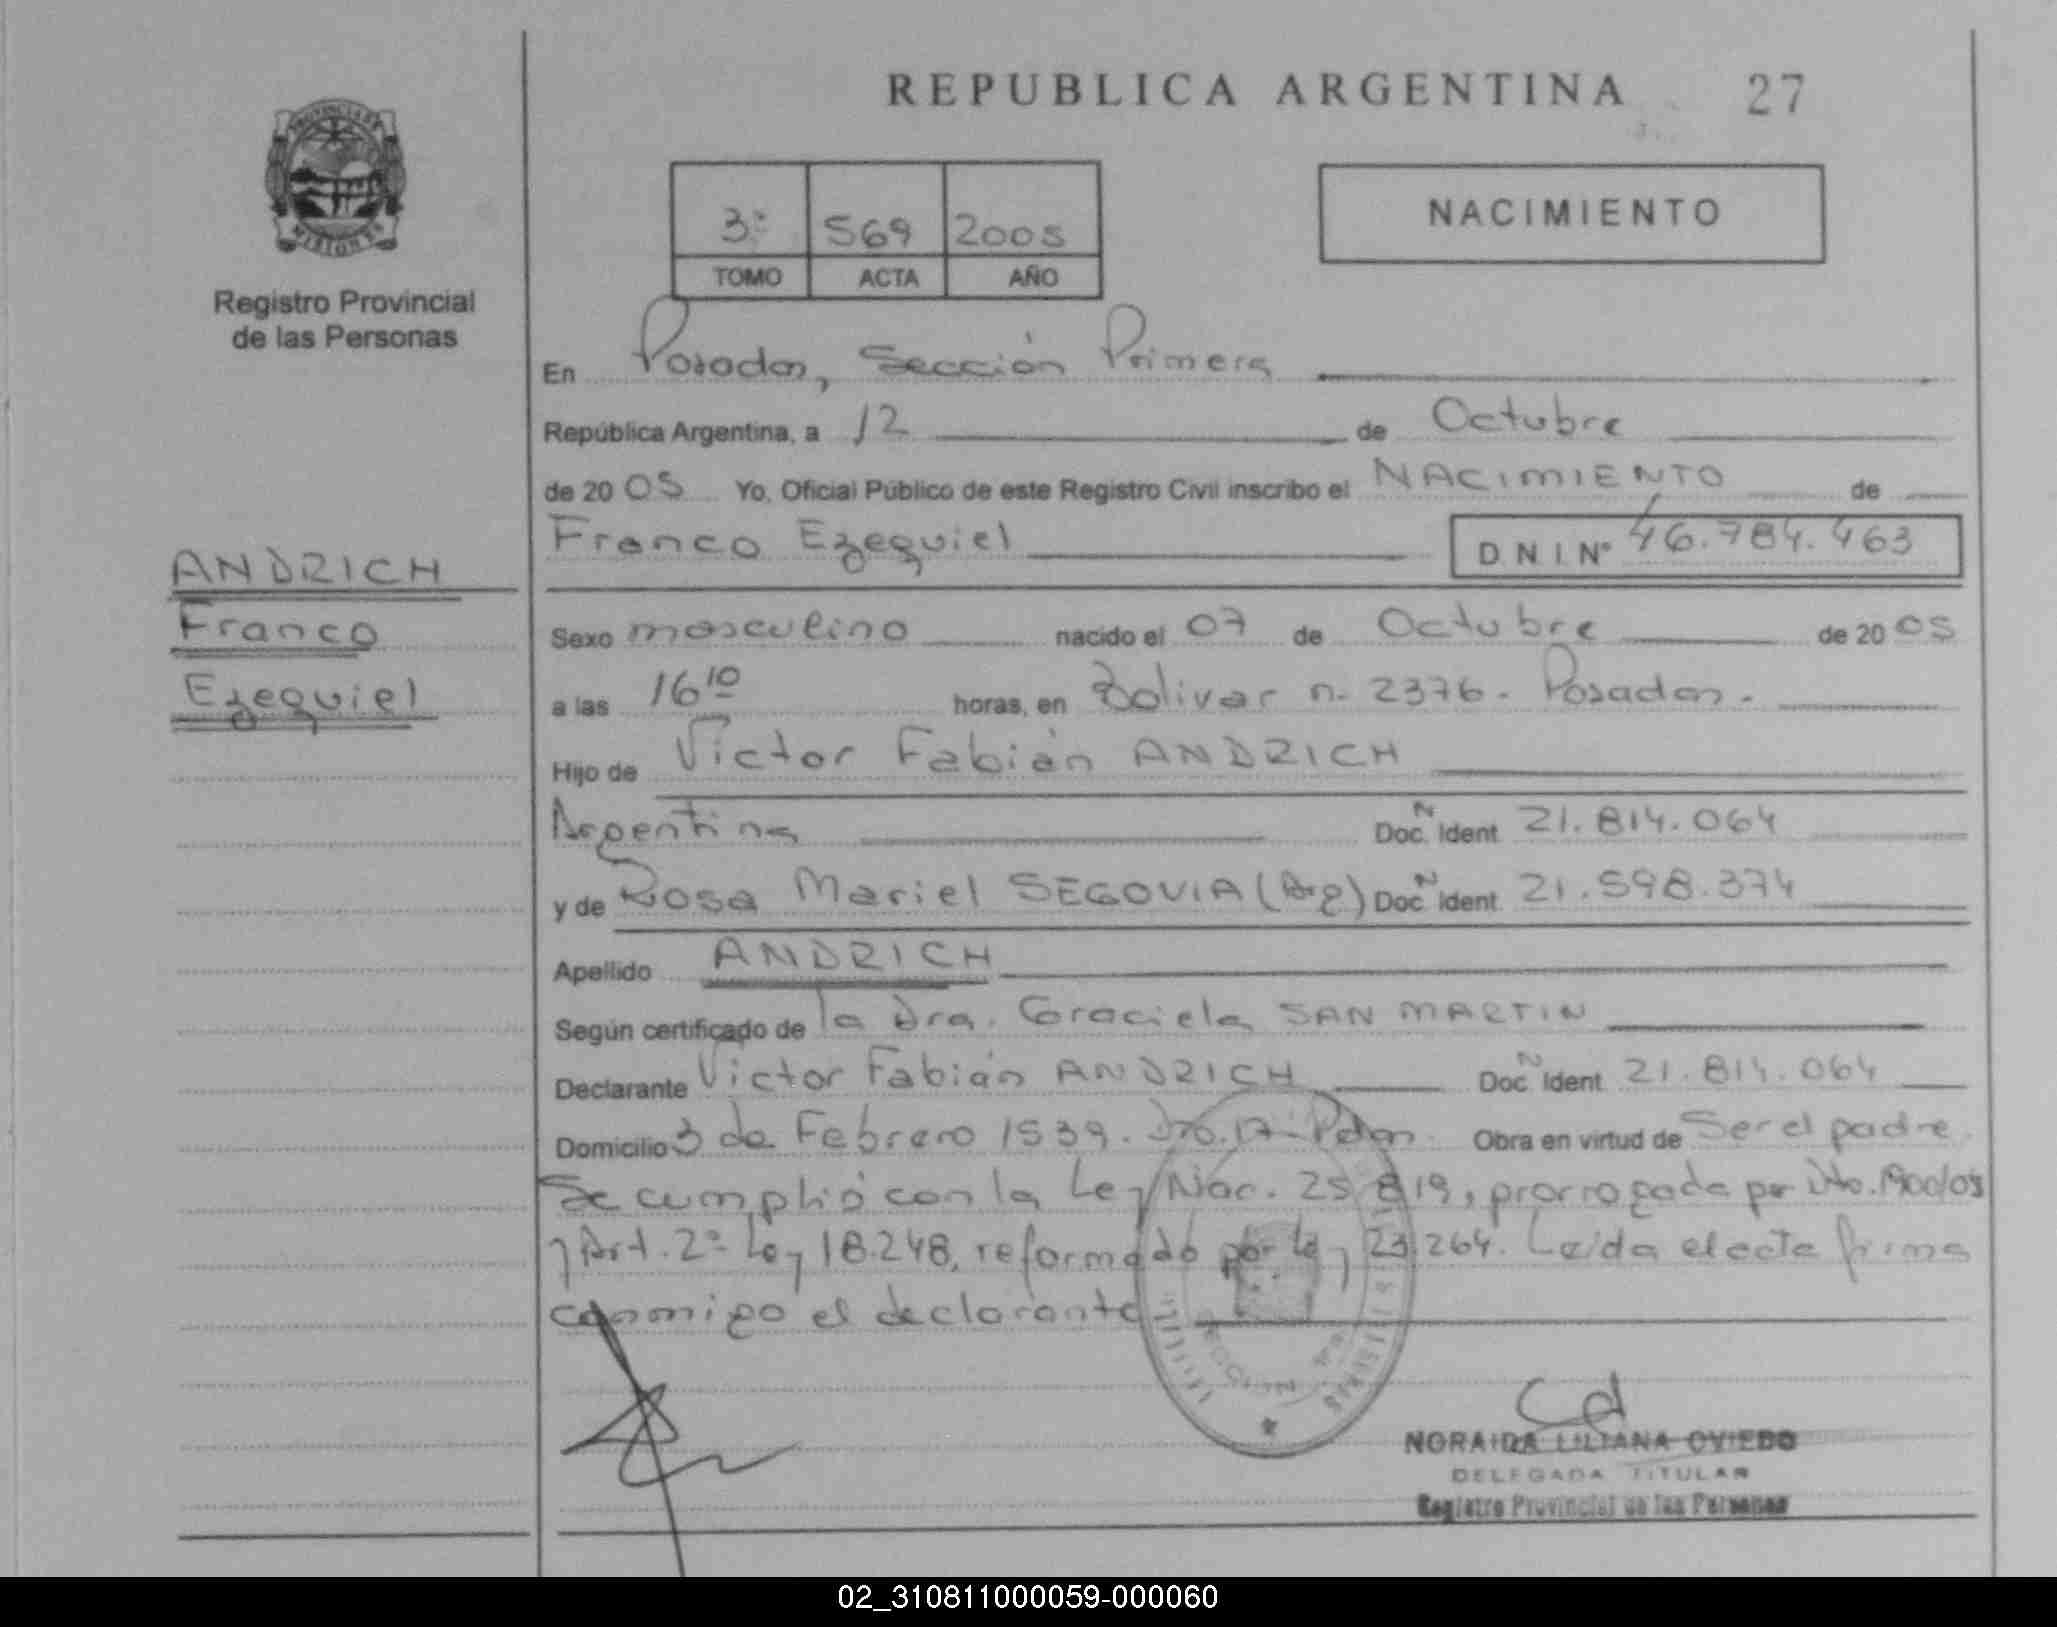 REPUBLICA ARGENTINA 27
PROVINCIA DE
MISIONES
Registro Provincial
de las Personas
3º 569 2005
TOMO ACTA AÑO
NACIMIENTO
En Posadas, Sección Primera
República Argentina, a 12 de Octubre
de 2005 Yo, Oficial Público de este Registro Civil inscribo el NACIMIENTO de
Franco Ezequiel D N I Nº 46.784.463
ANDRICH
Franco
Ezequiel
Sexo masculino nacido el 07 de Octubre de 2005
a las 16 10 horas, en Bolivar n. 2376. Posadas.
Hijo de Victor Fabián ANDRICH
Argentina Doc. N Ident 21.814.064
y de Rosa Mariel SEGOVIA (Arg) Doc. N Ident. 21.598.374
Apellido ANDRICH
Según certificado de la Dra. Graciela SAN MARTIN
Declarante Victor Fabián ANDRICH Doc. N Ident. 21.814.064
Domicilio 3 de Febrero 1539. Obra en virtud de Ser el padre
Se cumplió con la Ley Nac. 25.819, prorrogada por Dto.
y Art. 2º Ley 18.248, reformado por Ley 23.264. Leída el acta firma
conmigo el declarante
SECCION 1ra
NORAIDA LILIANA OVIEDO
DELEGADA TITULAR
Registro Provincial de las Personas
02_310811000059-000060